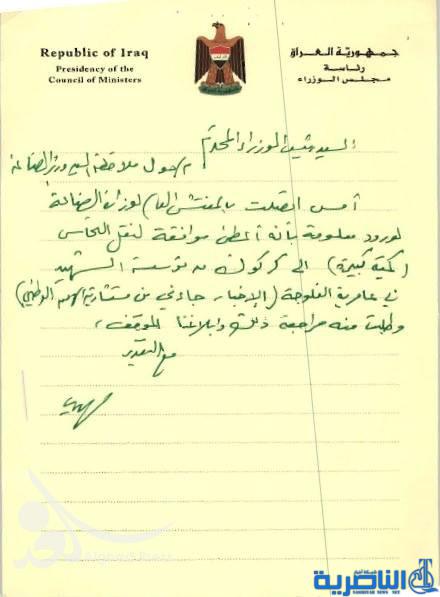 Republic of Iraq
Presidency of the
Council of Ministers
جمهورية العراق
رئاسة
مجلس الوزراء
السيد رئيس الوزراء المحترم
م/ حول ملاحظة السيد وزير الصناعة
أمس اتصلت بالمفتش العام لوزارة الصناعة
لورود معلومة بأنه أعطى موافقة لنقل النحاس
(كمية كبيرة) الى كركوك من مؤسسة الشهيد
في عامرية الفلوجة (الإخبار جاءني من مستشارية الأمن الوطني)
وطلبت منه مراجعة ذلك وإبلاغنا الموقف،
مع التقدير
شبكة اخبار
الناصرية
NASIRIYAH NEWS NET